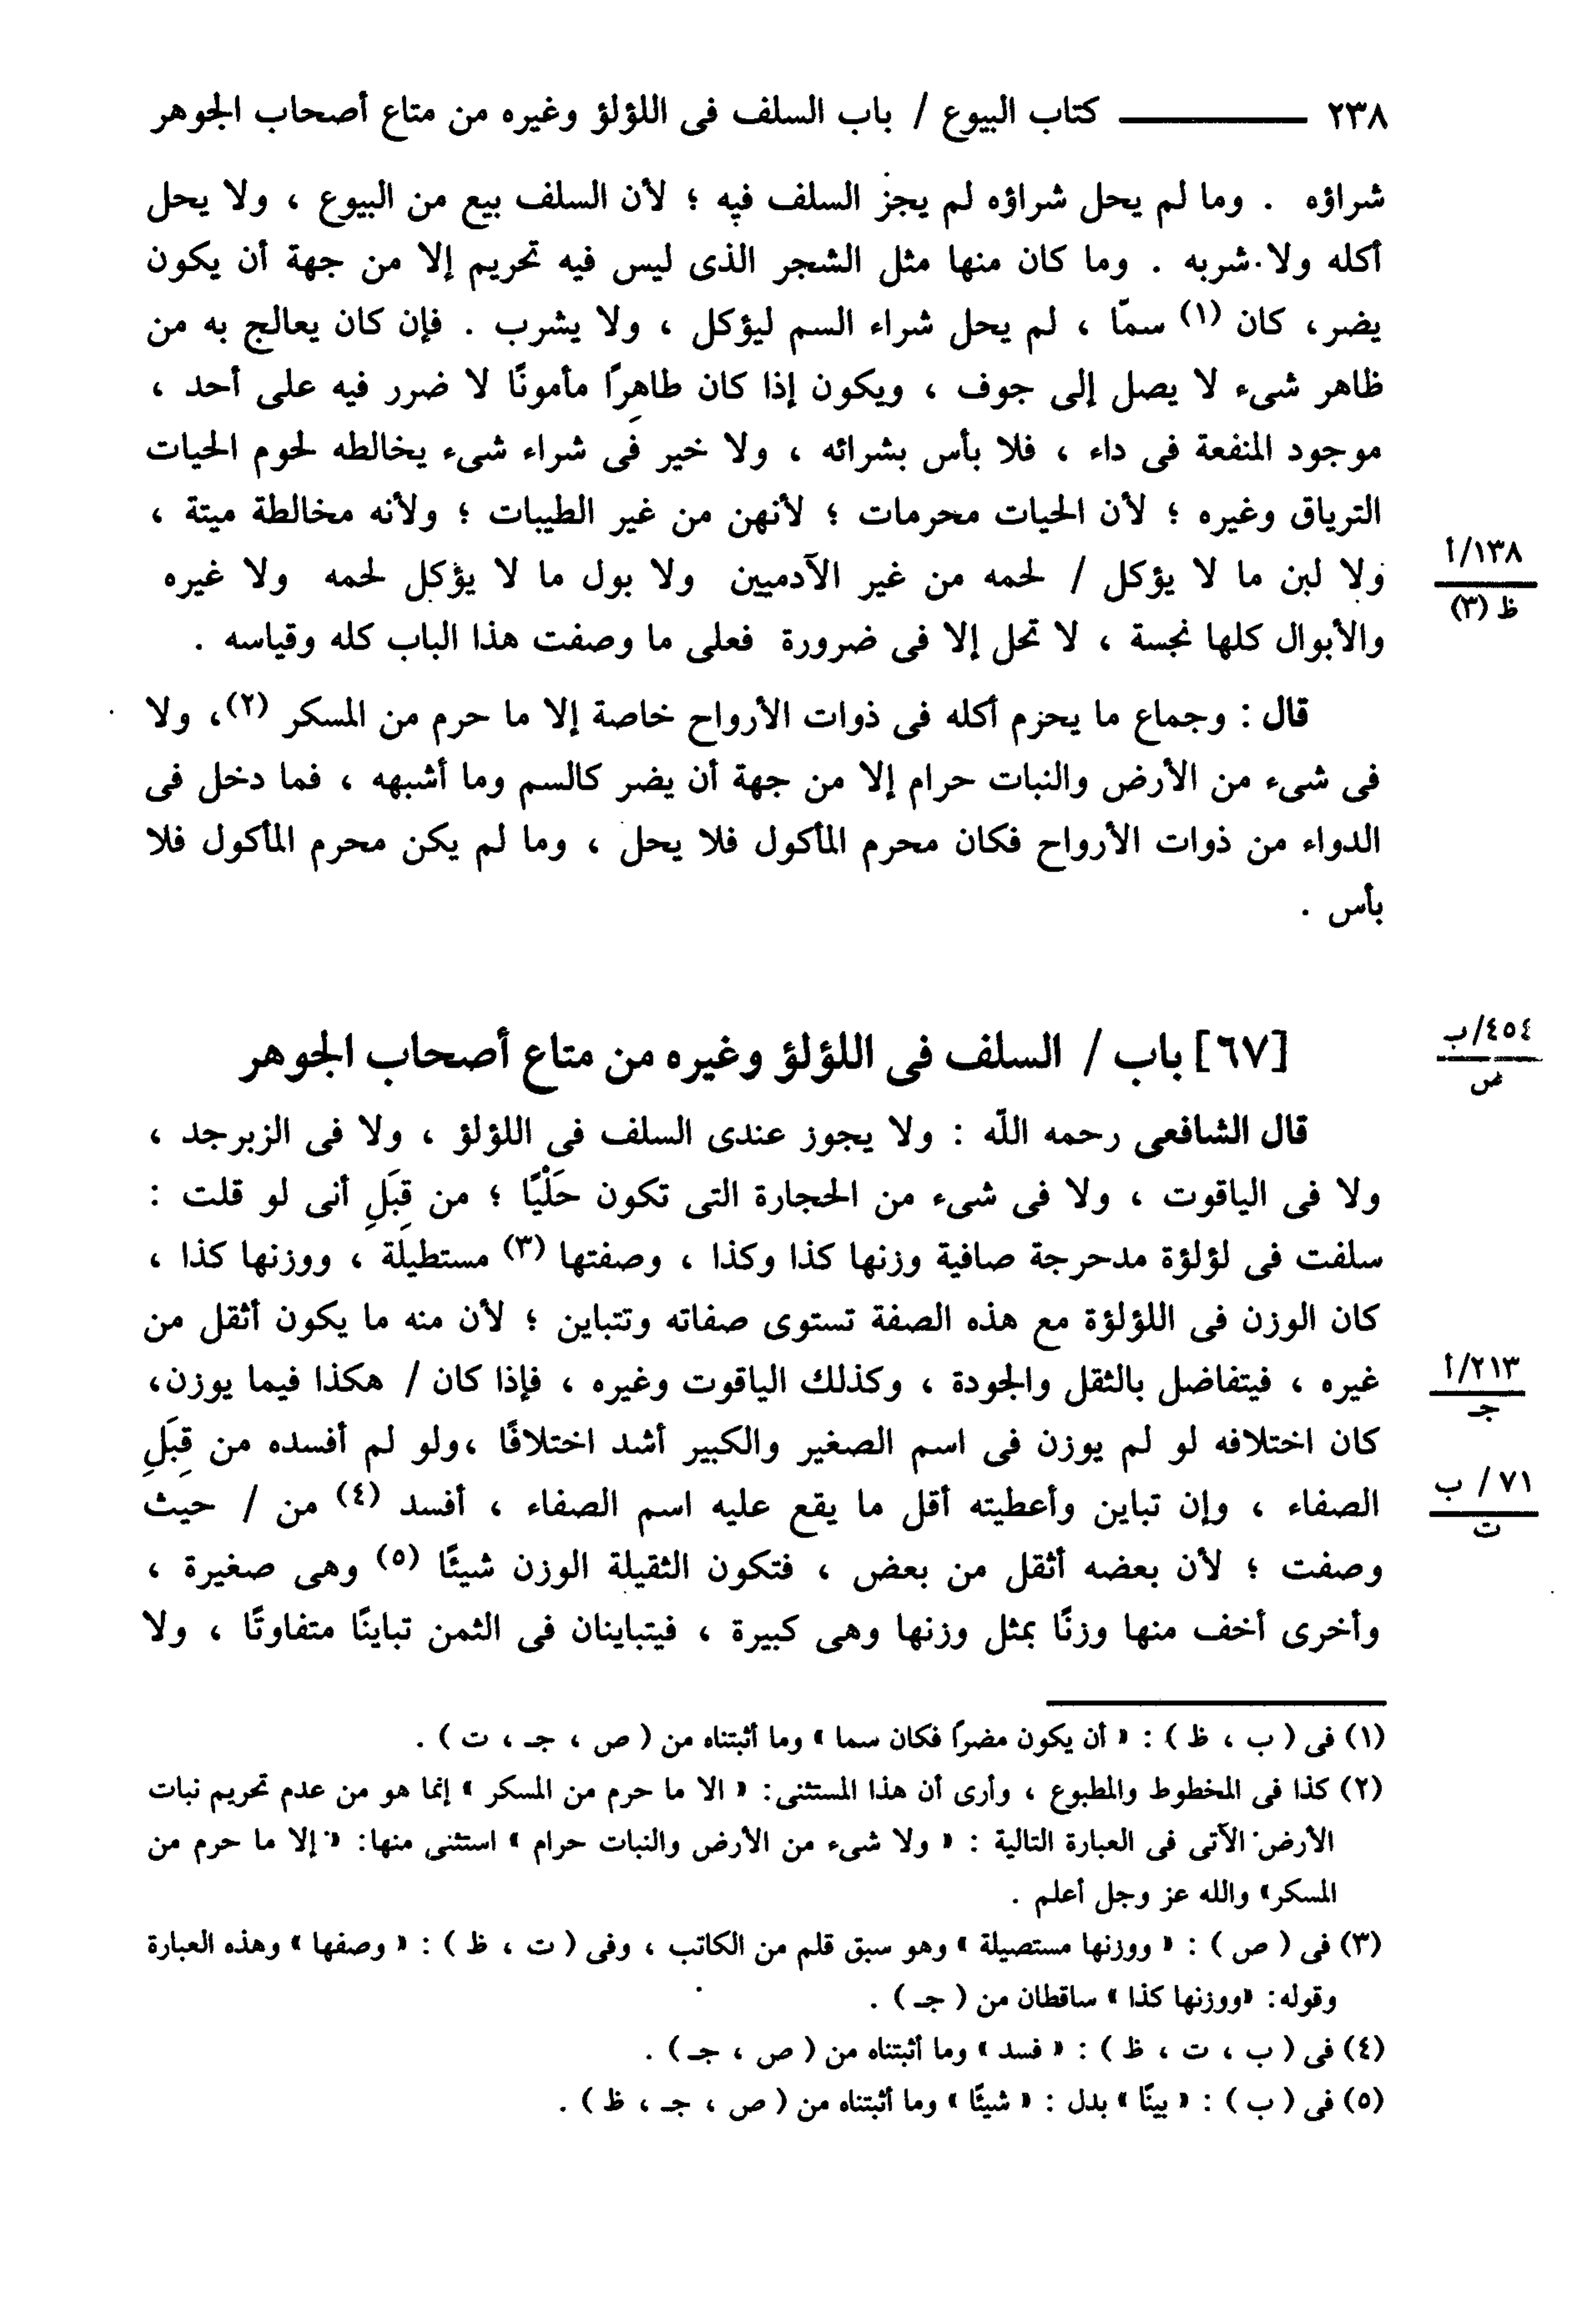 ٢٣٨ ــــــــــ كتاب البيوع / باب السلف فى اللؤلؤ وغيره من متاع أصحاب الجوهر
شراؤه . وما لم يحل شراؤه لم يجز السلف فيه ؛ لأن السلف بيع من البيوع ، ولا يحل
أكله ولا شربه . وما كان منها مثل الشجر الذى ليس فيه تحريم إلا من جهة أن يكون
يضر، كان (١) سمّا ، لم يحل شراء السم ليؤكل ، ولا يشرب . فإن كان يعالج به من
ظاهر شىء لا يصل إلى جوف ، ويكون إذا كان طاهرًا مأمونًا لا ضرر فيه على أحد ،
موجود المنفعة فى داء ، فلا بأس بشرائه ، ولا خير فى شراء شىء يخالطه لحوم الحيات
الترياق وغيره ؛ لأن الحيات محرمات ؛ لأنهن من غير الطيبات ؛ ولأنه مخالطة ميتة ،
ولا لبن ما لا يؤكل / لحمه من غير الآدميين ولا بول ما لا يؤكل لحمه ولا غيره
١٣٨/أ
ظ (٣)
والأبوال كلها نجسة ، لا تحل إلا فى ضرورة فعلى ما وصفت هذا الباب كله وقياسه .
قال : وجماع ما يحرم أكله فى ذوات الأرواح خاصة إلا ما حرم من المسكر (٢)، ولا
فى شىء من الأرض والنبات حرام إلا من جهة أن يضر كالسم وما أشبهه ، فما دخل فى
الدواء من ذوات الأرواح فكان محرم المأكول فلا يحل ، وما لم يكن محرم المأكول فلا
بأس .
[٦٧] باب / السلف فى اللؤلؤ وغيره من متاع أصحاب الجوهر
٤٥٤/ب
ص
قال الشافعى رحمه اللّه : ولا يجوز عندى السلف فى اللؤلؤ ، ولا فى الزبرجد ،
ولا فى الياقوت ، ولا فى شىء من الحجارة التى تكون حَلْيًا ؛ من قِبَلِ أنى لو قلت :
سلفت فى لؤلؤة مدحرجة صافية وزنها كذا وكذا ، وصفتها (٣) مستطيلة ، ووزنها كذا ،
كان الوزن فى اللؤلؤة مع هذه الصفة تستوى صفاته وتتباين ؛ لأن منه ما يكون أثقل من
غيره ، فيتفاضل بالثقل والجودة ، وكذلك الياقوت وغيره ، فإذا كان / هكذا فيما يوزن،
٢١٣/أ
جـ
كان اختلافه لو لم يوزن فى اسم الصغير والكبير أشد اختلافًا ،ولو لم أفسده من قِبَلِ
الصفاء ، وإن تباين وأعطيته أقل ما يقع عليه اسم الصفاء ، أفسد (٤) من / حيث
٧١/ ب
ت
وصفت ؛ لأن بعضه أثقل من بعض ، فتكون الثقيلة الوزن شيئًا (٥) وهى صغيرة ،
وأخرى أخف منها وزنًا بمثل وزنها وهى كبيرة ، فيتباينان فى الثمن تباينًا متفاوتًا ، ولا
(١) فى ( ب ، ظ ) : « أن يكون مضرًا فكان سما » وما أثبتناه من ( ص ، جـ ، ت ) .
(٢) كذا فى المخطوط والمطبوع ، وأرى أن هذا المستثنى: « الا ما حرم من المسكر » إنما هو من عدم تحريم نبات
الأرض الآتى فى العبارة التالية : « ولا شىء من الأرض والنبات حرام » استثنى منها: « إلا ما حرم من
المسكر» والله عز وجل أعلم .
(٣) فى ( ص ) : « ووزنها مستصيلة » وهو سبق قلم من الكاتب ، وفى ( ت ، ظ ) : « وصفها » وهذه العبارة
وقوله: «ووزنها كذا » ساقطان من ( جـ ) .
(٤) فى ( ب ، ت ، ظ ) : « فسد » وما أثبتناه من ( ص ، جـ ) .
(٥) فى ( ب ) : « بينًا » بدل : « شيئًا » وما أثبتناه من ( ص ، جـ ، ظ ) .